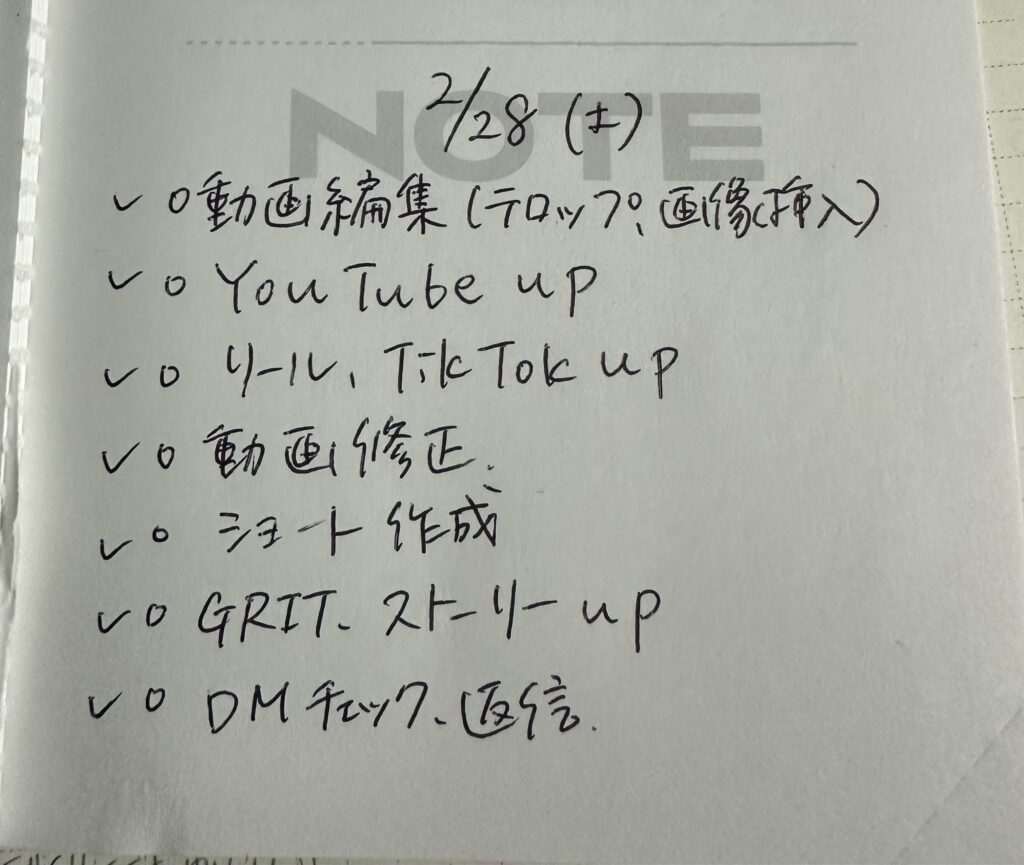 NOTE
2/28 (土)
✓ ○ 動画編集 (テロップ、画像挿入)
✓ ○ YouTube up
✓ ○ リール、TikTok up
✓ ○ 動画修正.
✓ ○ ショート作成
✓ ○ GRIT、ストーリー up
✓ ○ DMチェック、返信.